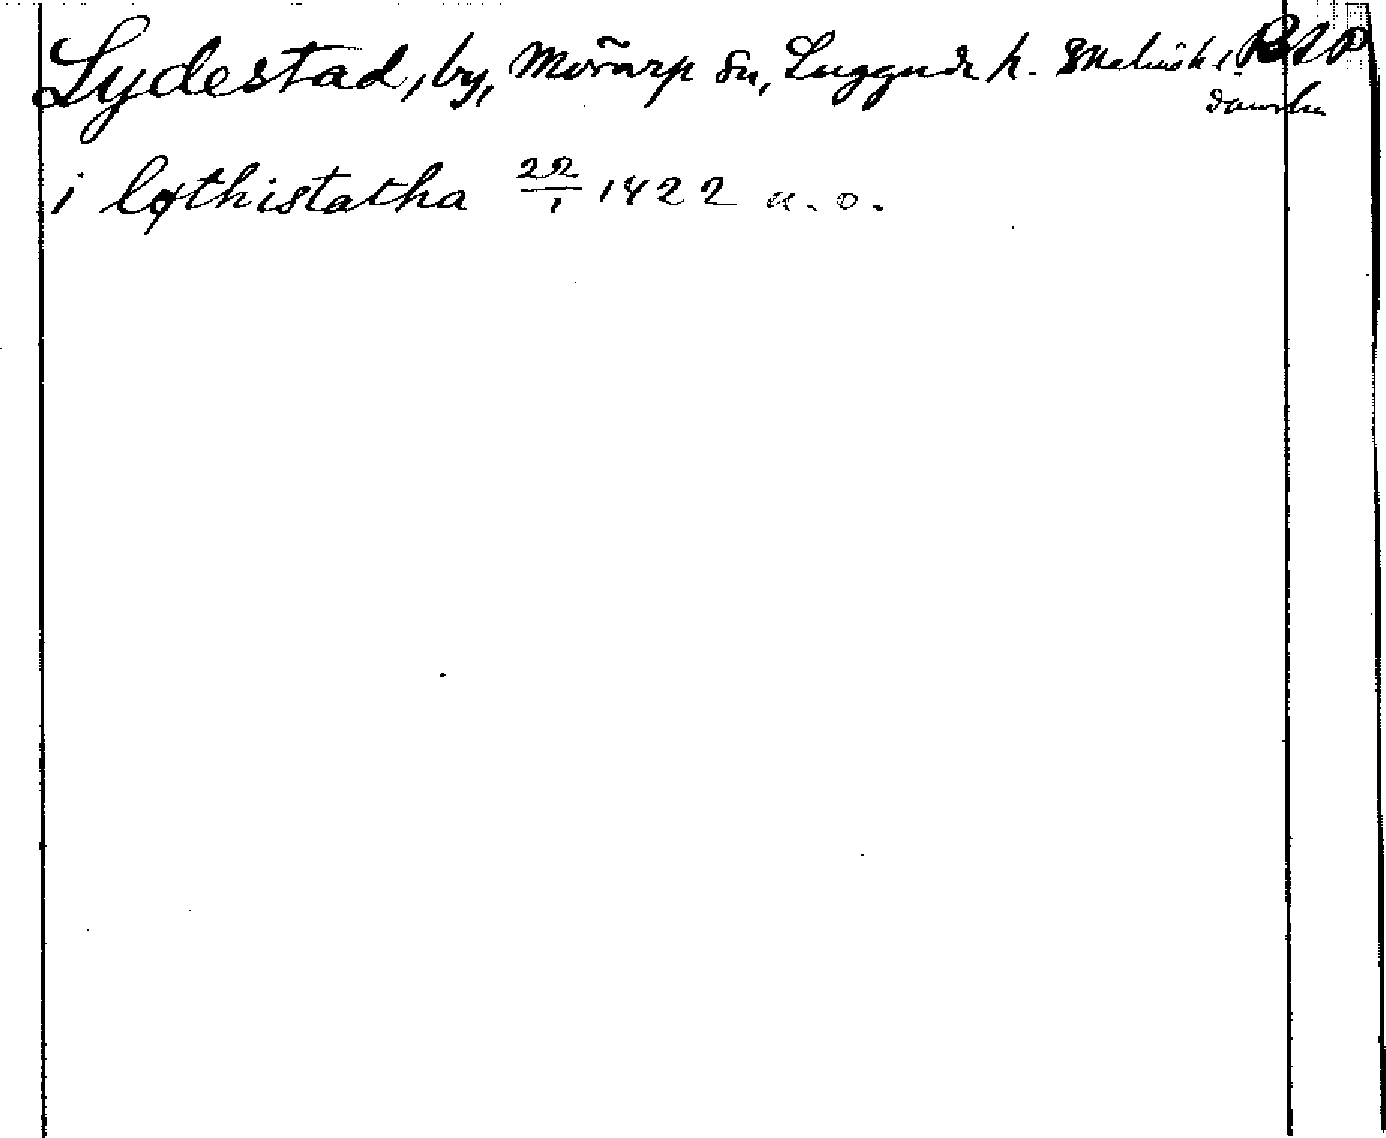 Lydestad, by, Mörarp sn, Luggude h. Malmöh l. BSP
danska
i lythistatha 22/1 1422 u. o.